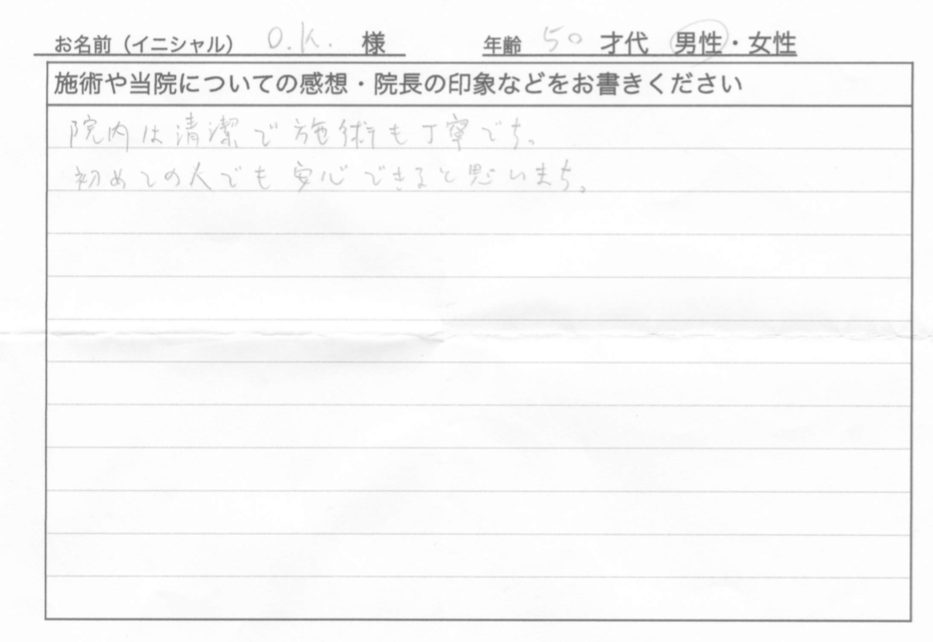 お名前(イニシャル) O.K. 様 年齢 50 才代 男性・女性
施術や当院についての感想・院長の印象などをお書きください
院内は清潔で施術も丁寧です。
初めての人でも安心できると思います。